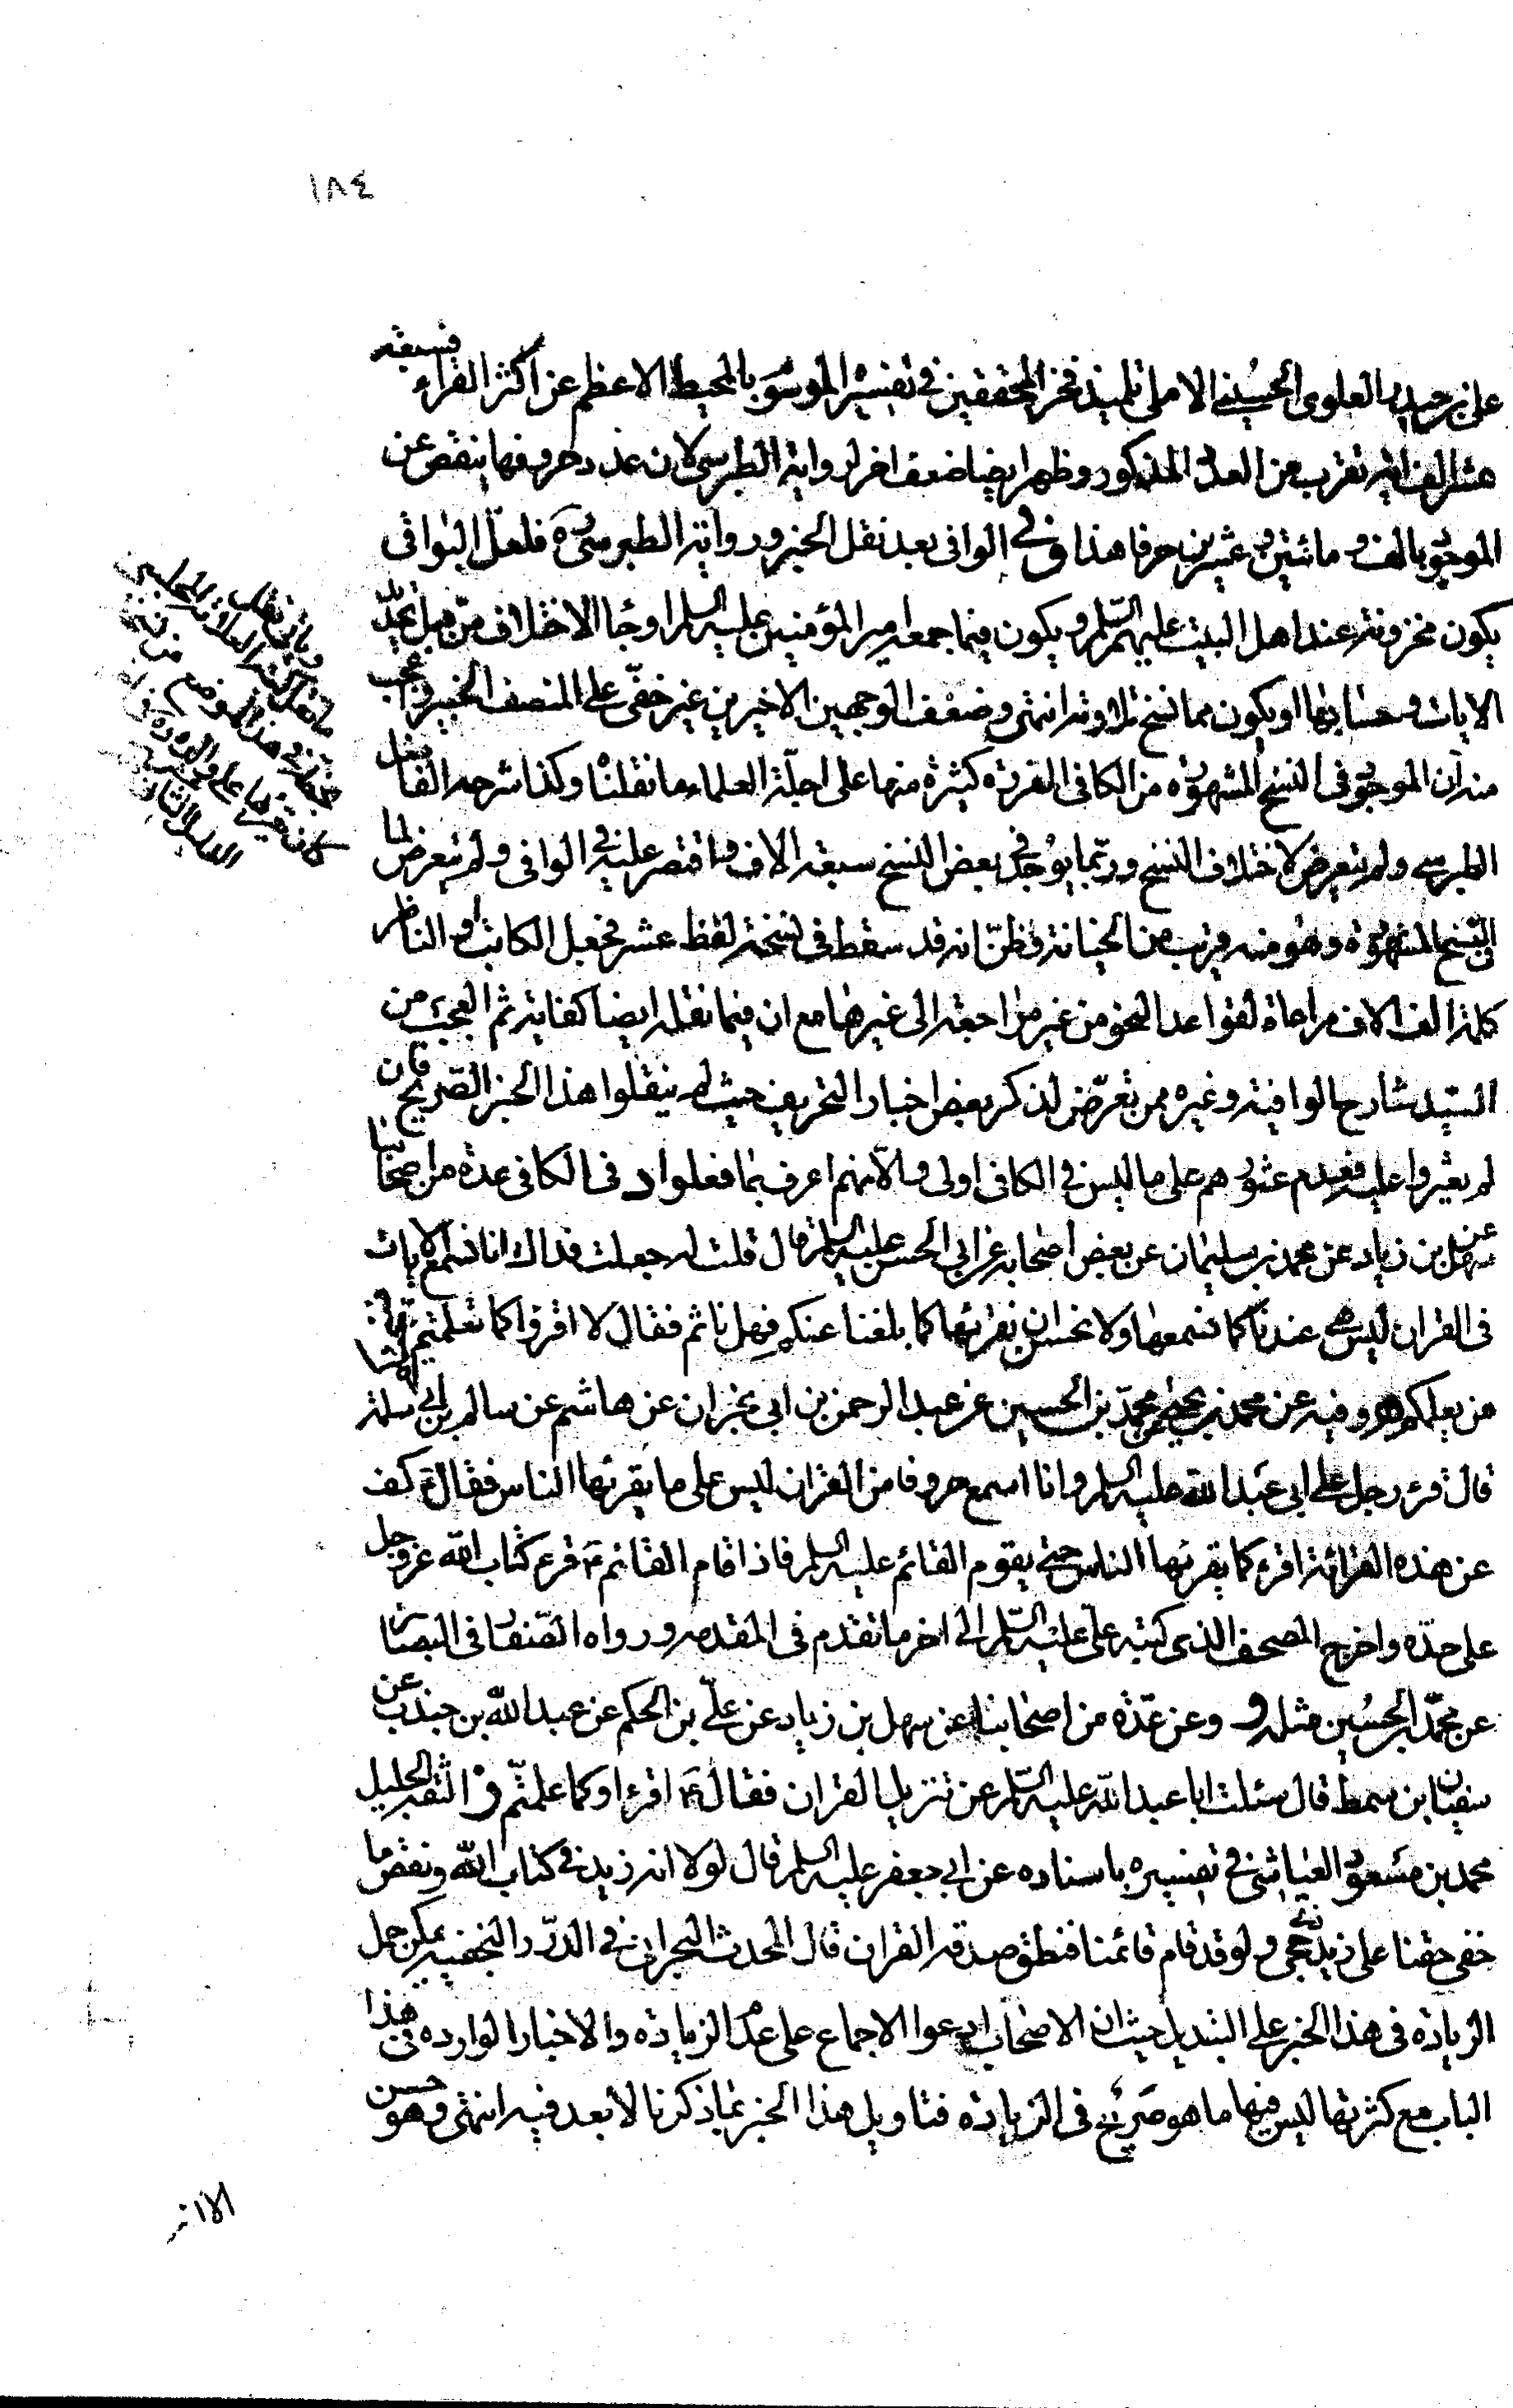 ١٨٤
على بن حيدر العلوى الحسينى الاملى تلميذ فخر المحققين فى تفسيره الموسوم بالمحيط الاعظم عن اكثر القراء فسبعة
عشر الف اية تقرب من العدد المذكور وظهر ايضا ضعف اخر لرواية الطبرسى لان عدد حروفها ينقص عن
الموجود بالف ومائتين وعشرين حرفا هذا وفى الوافى بعد نقل الخبر ورواية الطبرسى ره فلعل البواقى
يكون مخزونة عند اهل البيت عليهم السلم ويكون فيما جمعه امير المؤمنين عليه السلم اوجا الاختلاف من قبل تحديد
الايات وحسابها او يكون مما نسخ تلاوته انتهى وضعف الوجهين الاخيرين غير خفى على المنصف الخبير واعجب
منه ان الموجود فى النسخ المشهورة من الكافى المقروة كثيرة منها على اجلة العلماء ما نقلنا وكذا شرحه الفاضل
الطبرسى ولم يتعرض لاختلاف النسخ وربما يوجد فى بعض النسخ سبعة الاف واقتصر عليه فى الوافى ولم يتعرض لما
فى النسخ المشهورة وهو منه قريب من الخيانة وظنى انه قد سقط فى نسخته لفظ عشر فجعل الكاتب او الناظر
كلمة الف الاف مراعاة لقواعد النحو من غير مراجعة الى غيرها مع ان فيما نقله ايضا كفاية ثم العجب من
السيد شارح الوافية وغيره ممن تعرض لذكر بعض اخبار التحريف حيث لم ينقلوا هذا الخبر الصريح فان
لم يعثروا عليه فعدم عثورهم على ما ليس فى الكافى اولى والا فهم اعرف بما فعلوا د فى الكافى عدة من اصحابنا
عن سهل بن زياد عن محمد بن سليمان عن بعض اصحابه عن ابى الحسن عليه السلم قال قلت له جعلت فداك انا نسمع الايات
فى القران ليس هى عندنا كما نسمعها ولا نحسن ان نقرئها كما بلغنا عنكم فهل ناثم فقال لا اقرؤا كما تعلمتم فسيجيئكم
من يعلمكم ه وفيه عن محمد بن يحيى عن محمد بن الحسين عن عبد الرحمن بن ابى نجران عن هاشم عن سالم بن ابى سلمة
قال قرء رجل على ابى عبد الله عليه السلم وانا اسمع حروفا من القران ليس على ما يقرئها الناس فقال ع كف
عن هذه القرائة اقرء كما يقرئها الناس حتى يقوم القائم عليه السلم فاذا قام القائم ع قرء كتاب الله عز وجل
على حده واخرج المصحف الذى كتبه على عليه السلم الى اخر ما تقدم فى المقدمه ورواه الصفار فى البصائر
عن محمد بن الحسين مثله و وعن عدة من اصحابنا عن سهل بن زياد عن على بن الحكم عن عبد الله بن جندب عن
سفيان بن سمط قال سئلت ابا عبد الله عليه السلم عن تنزيل القران فقال ع اقرؤا كما علمتم ز الثقة الجليل
محمد بن مسعود العياشى فى تفسيره باسناده عن ابى جعفر عليه السلم قال لولا انه زيد فى كتاب الله ونقص ما
خفى حقنا على ذى حجى ولو قد قام قائمنا فنطق صدقه القران قال المحدث البحرانى فى الدرر النجفية يمكن حمل
الزيادة فى هذا الخبر على التبديل حيث ان الاصحاب ادعوا الاجماع على عدم الزيادة والاخبار الواردة فى هذا
الباب مع كثرتها ليس فيها ما هو صريح فى الزيادة فتاويل هذا الخبر بما ذكرنا لا بعد فيه انتهى وهو حسن